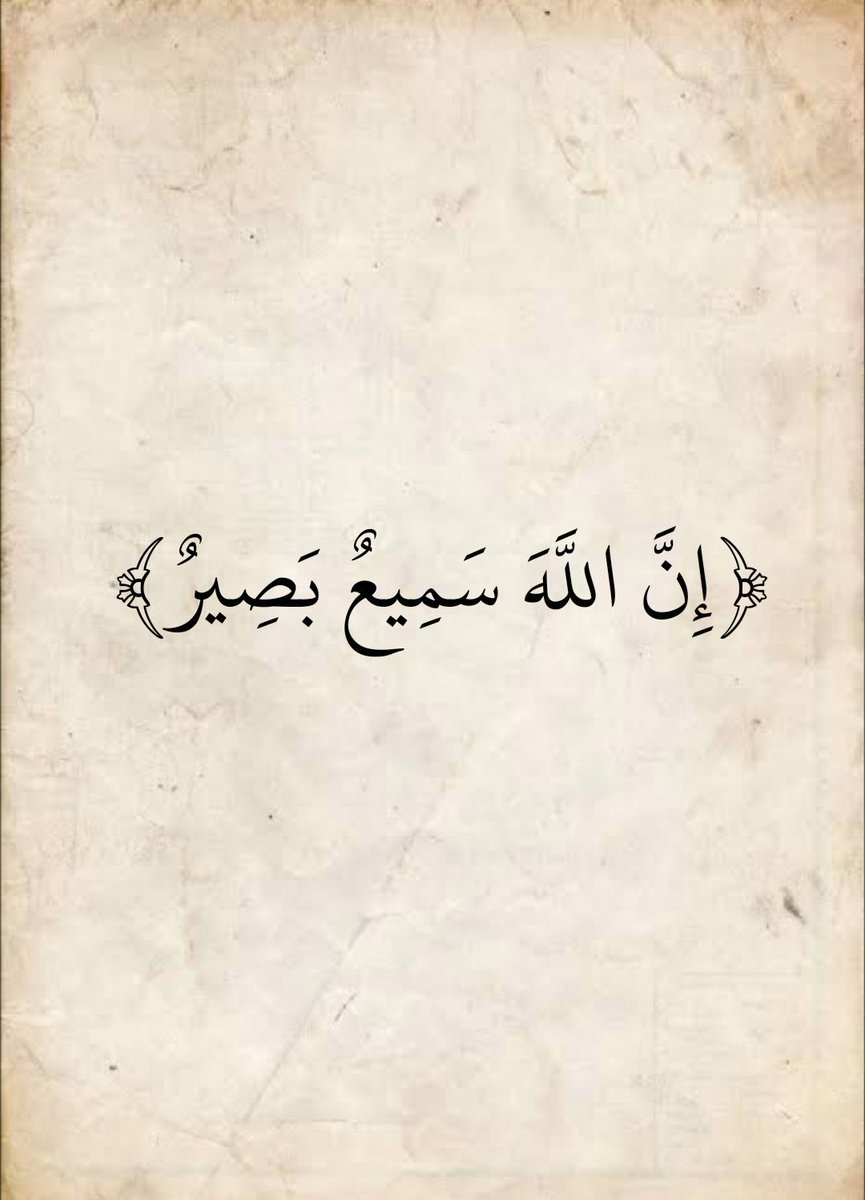 ﴿إِنَّ اللَّهَ سَمِيعٌ بَصِيرٌ﴾